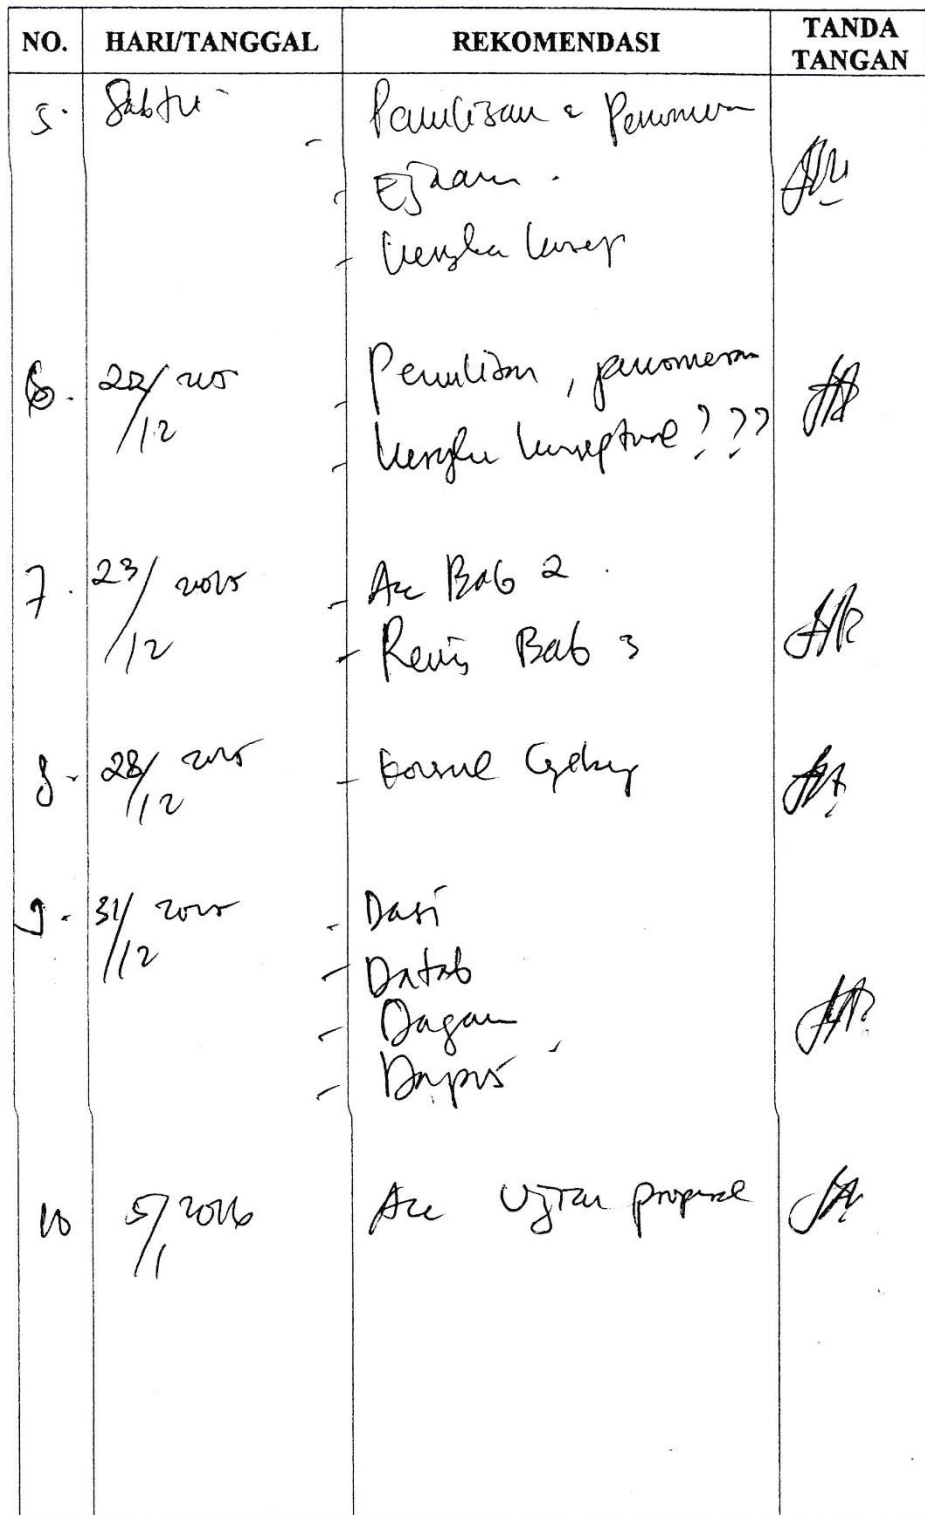 NO. HARI/TANGGAL REKOMENDASI TANDA TANGAN
5. Sabtu - Penulisan & Penomeran
- Ejaan.
- Kerangka konsep
6. /12 - Penulisan, penomeran
- Kerangka konseptual???
7. 23/12 2015 - Acc Bab 2.
- Revisi Bab 3
8. 28/12 2015 - 
9. 31/12 2015 - Dasi
- Datab
- Dagam
- Dapus
10 5/1 2016 Acc Ujian proposal